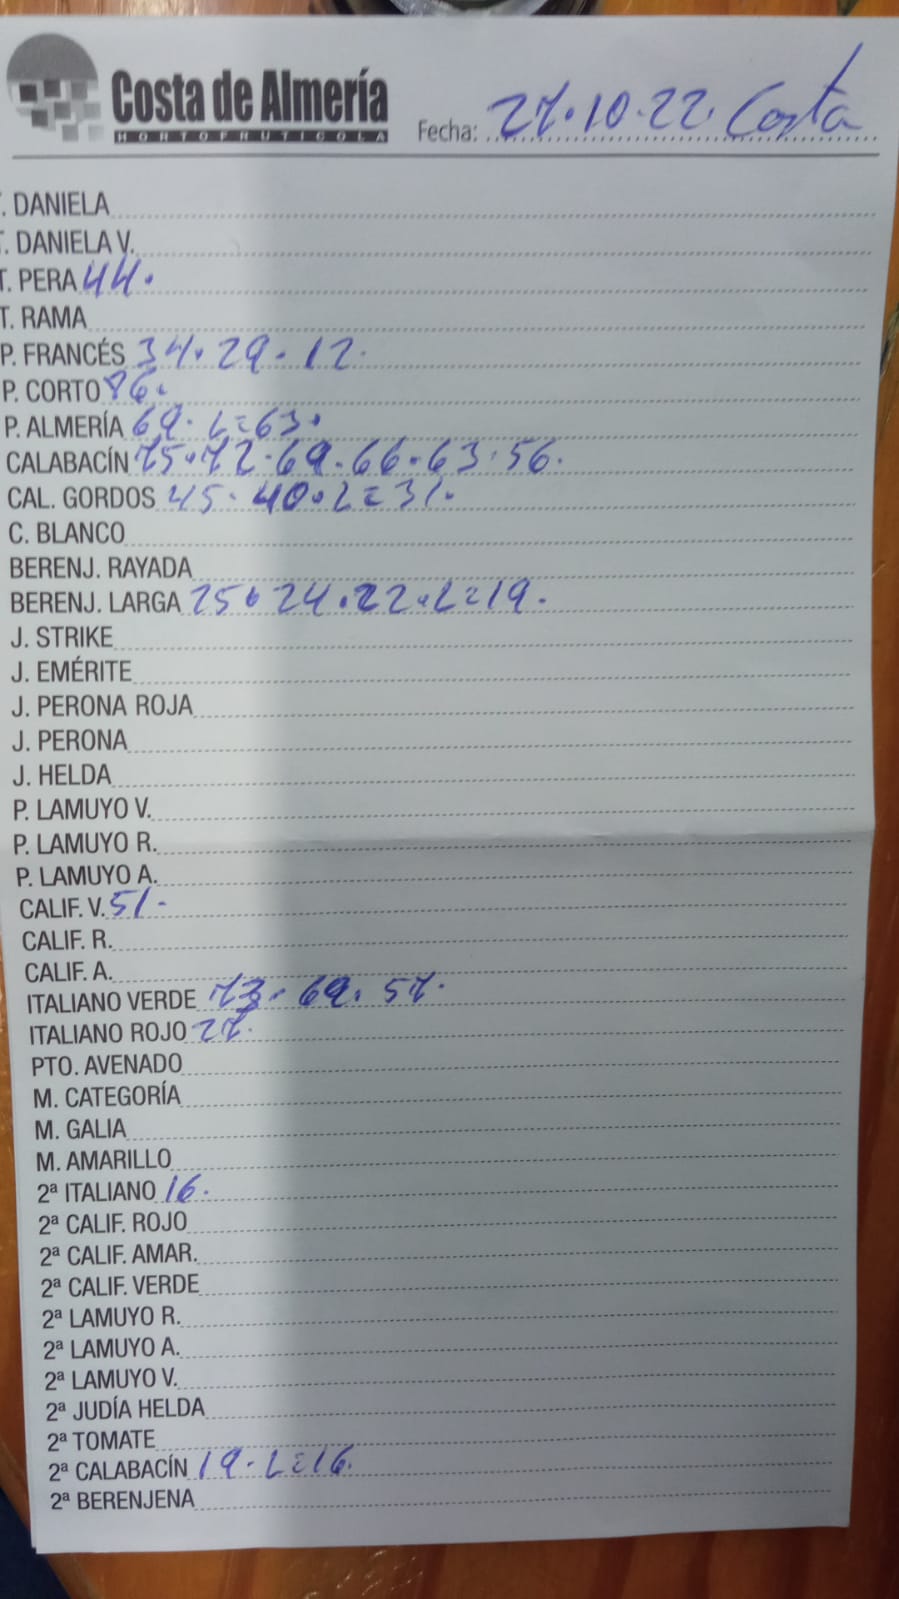 Costa de Almería
HORTOFRUTICOLA
Fecha: 27.10.22. Costa
T. DANIELA
T. DANIELA V.
T. PERA 44.
T. RAMA
P. FRANCÉS 34. 29. 12.
P. CORTO 86.
P. ALMERÍA 69. L=63.
CALABACÍN 75.72.69.66.63.56.
CAL. GORDOS 45. 40. L=31.
C. BLANCO
BERENJ. RAYADA
BERENJ. LARGA 25. 24. 22. L=19.
J. STRIKE
J. EMÉRITE
J. PERONA ROJA
J. PERONA
J. HELDA
P. LAMUYO V.
P. LAMUYO R.
P. LAMUYO A.
CALIF. V. 51.
CALIF. R.
CALIF. A.
ITALIANO VERDE 73. 69. 57.
ITALIANO ROJO 27.
PTO. AVENADO
M. CATEGORÍA
M. GALIA
M. AMARILLO
2ª ITALIANO 16.
2ª CALIF. ROJO
2ª CALIF. AMAR.
2ª CALIF. VERDE
2ª LAMUYO R.
2ª LAMUYO A.
2ª LAMUYO V.
2ª JUDÍA HELDA
2ª TOMATE
2ª CALABACÍN 19. L=16.
2ª BERENJENA